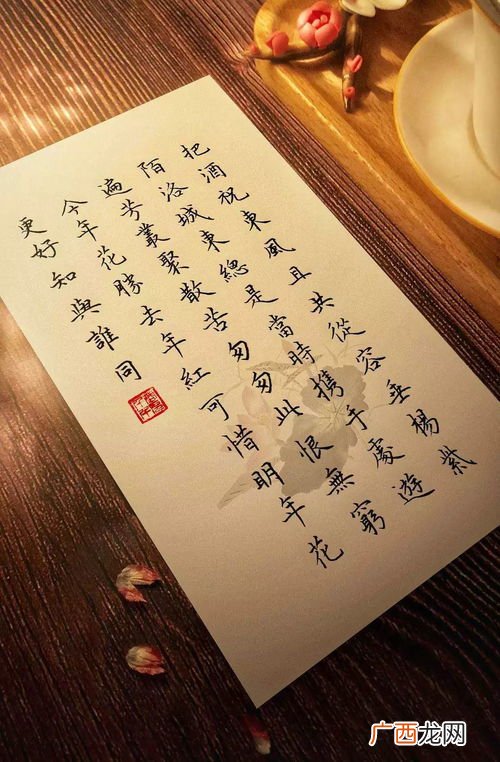 把酒祝東風且共從容垂楊紫
陌洛城東總是當時携手處遊
遍芳叢聚散苦匆匆此恨無窮
今年花勝去年紅可惜明年花
更好知與誰同
广西龙网